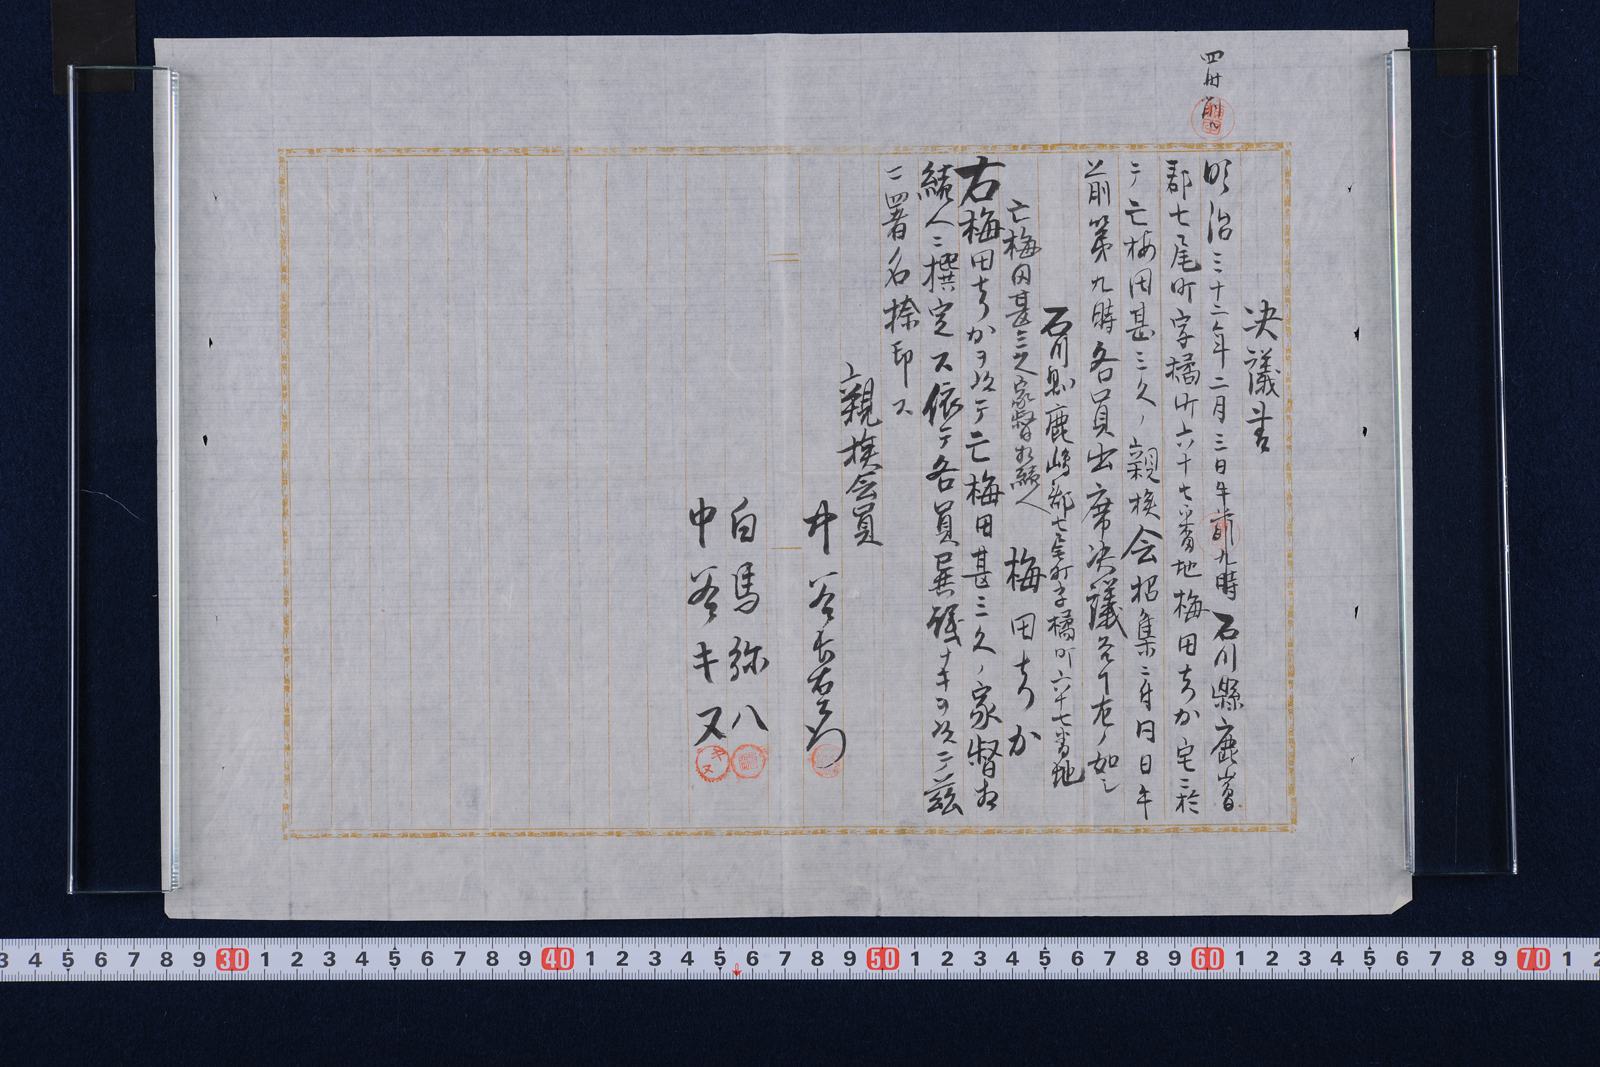 決議書
明治三十二年二月三日午前九時石川縣鹿島
郡七尾町字橘町六十七番地梅田ちか宅ニ於
テ亡梅田甚三久ノ親族会招集ニ付同日午
前第九時各員出席決議スル左ノ如シ
石川縣鹿嶋郡七尾町字橘町六十七番地
亡梅田甚三久家督相続人 梅田ちか
右梅田ちかヲ以テ亡梅田甚三久ノ家督相
続人ニ撰定ス依テ各員異議ナキヲ以テ茲
ニ署名捺印ス
親族会員
井谷長右衛門
白馬弥八
中谷キヌ
3 4 5 6 7 8 9 30 1 2 3 4 5 6 7 8 9 40 1 2 3 4 5 6 7 8 9 50 1 2 3 4 5 6 7 8 9 60 1 2 3 4 5 6 7 8 9 70 1